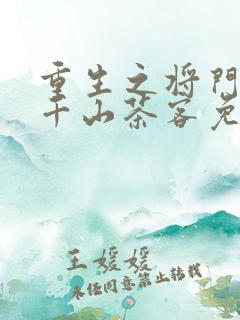 重生之将门
千山茶客免
王媛媛
未经同意禁止转载